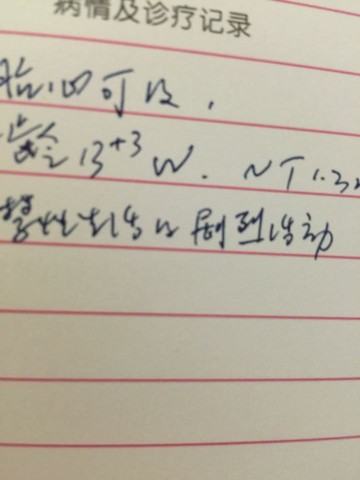 病情及诊疗记录
胎心可及，
龄13⁺³W. NT1.3
性生活及剧烈活动